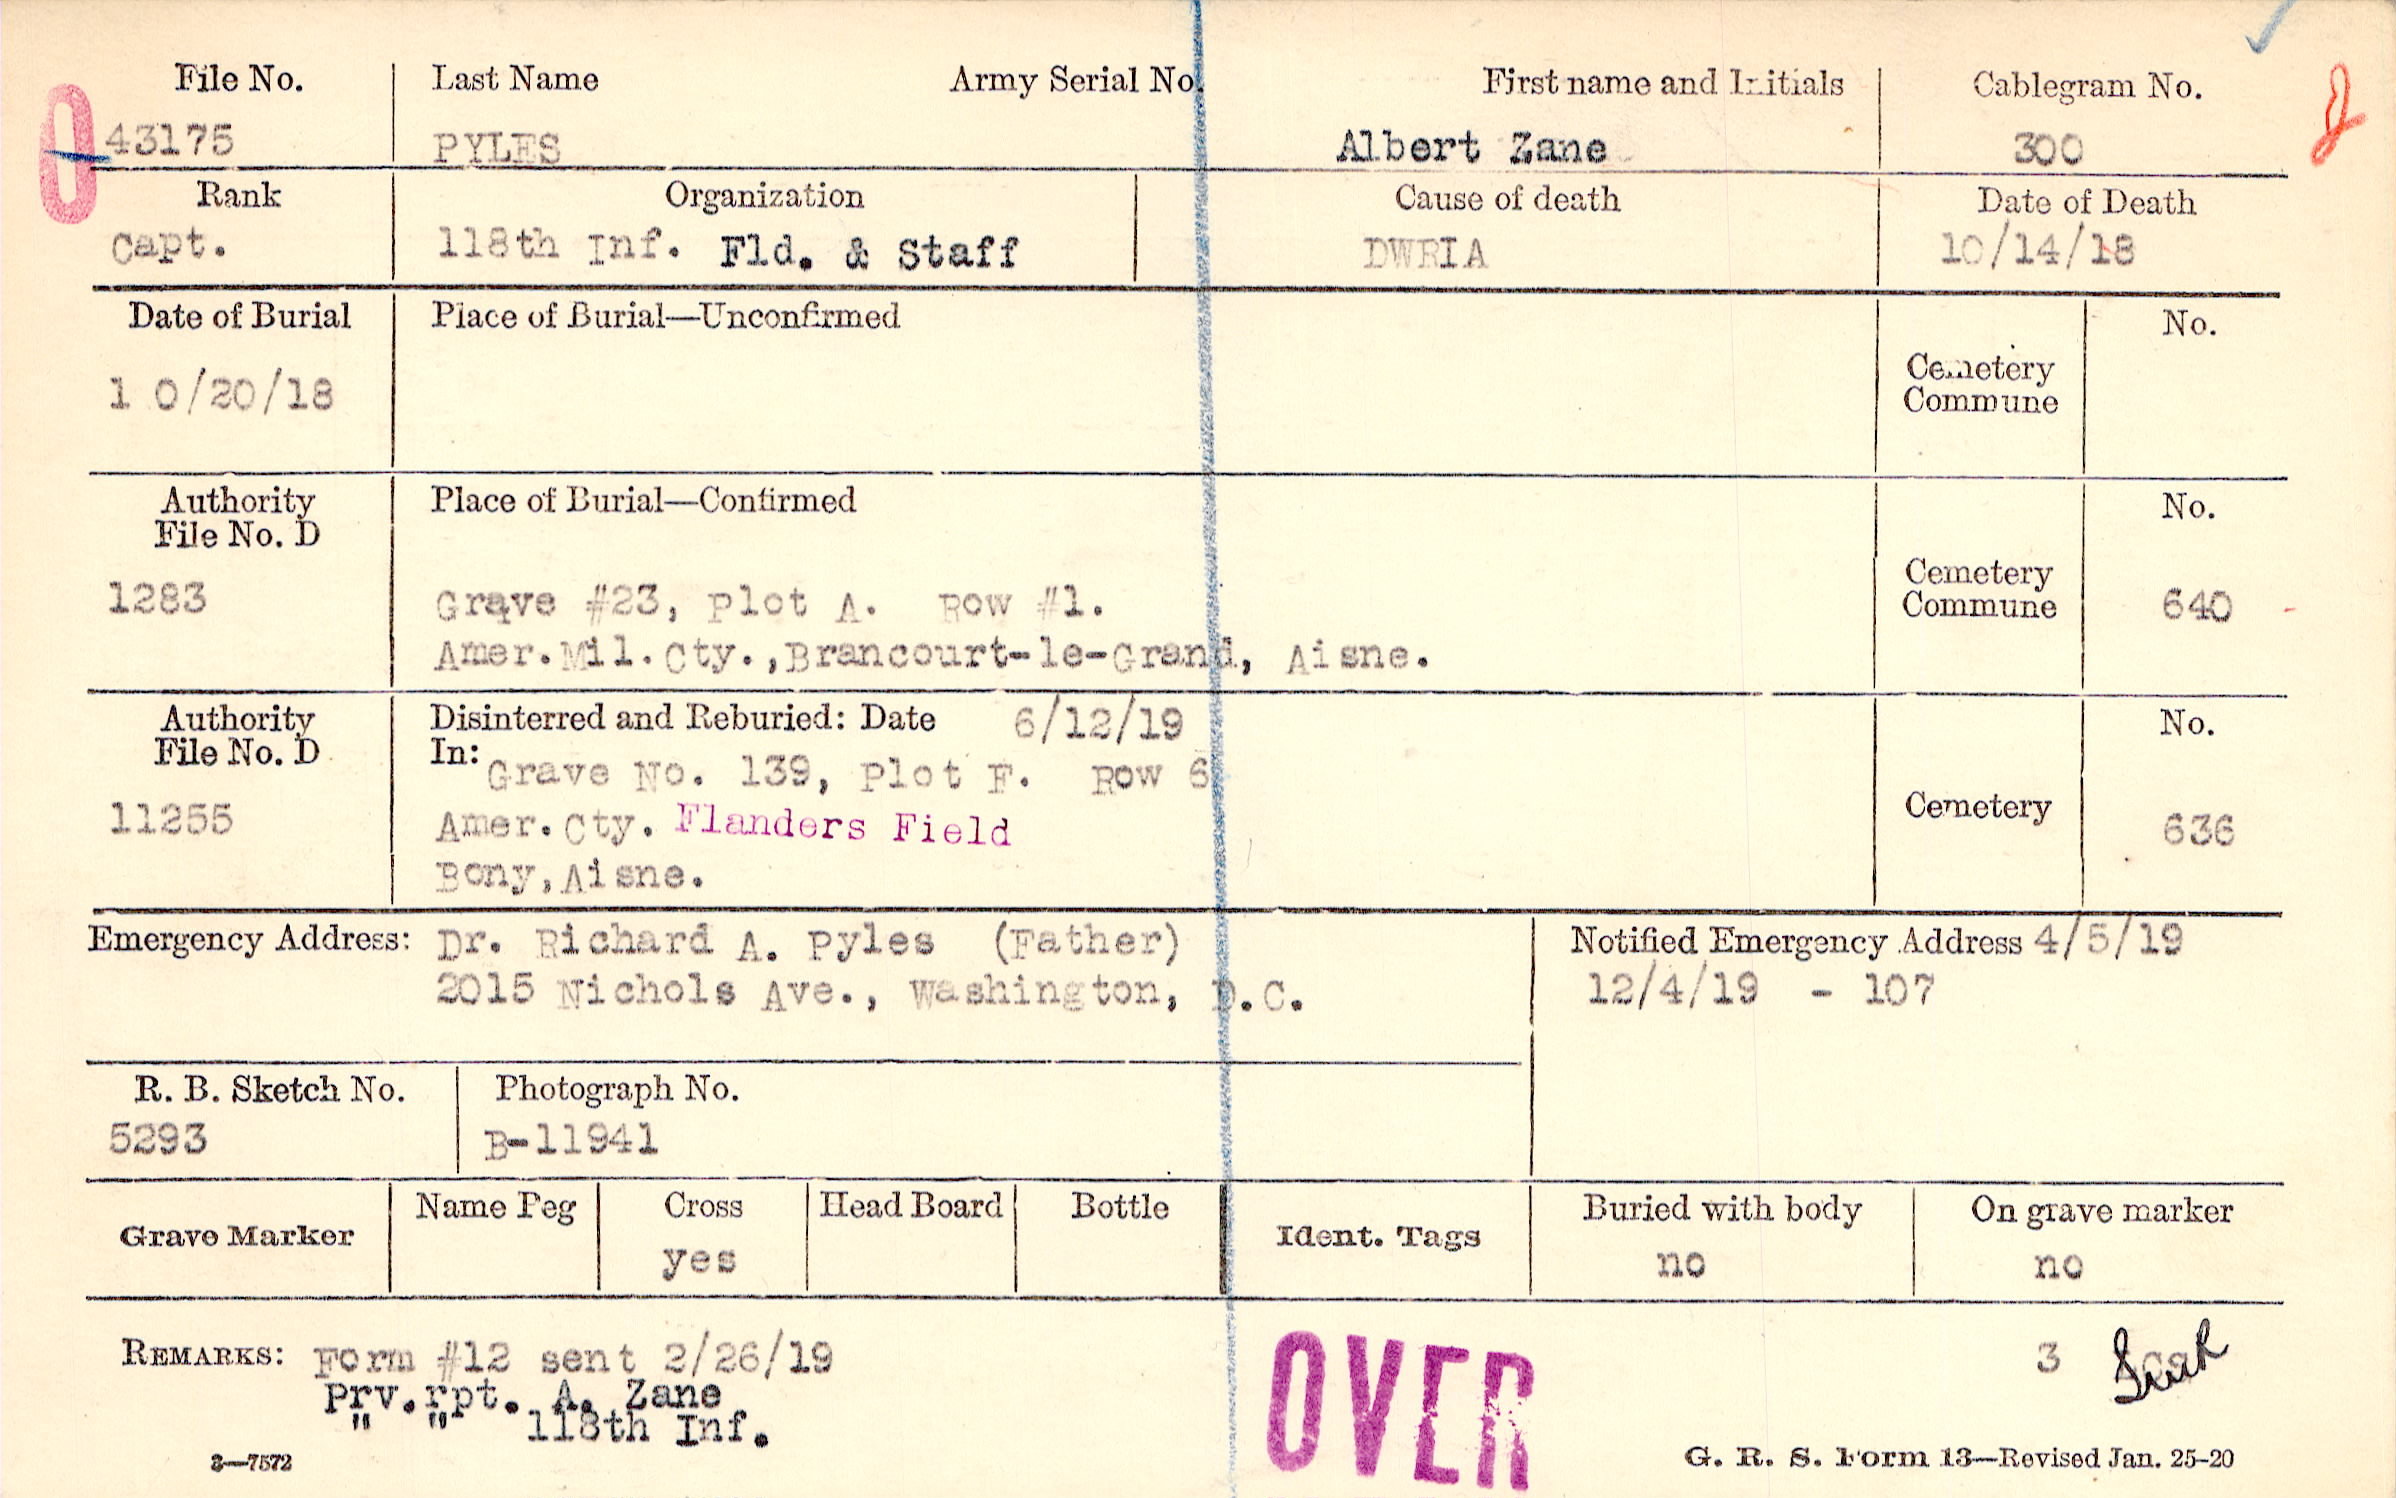 File No. Last Name Army Serial No. First name and Initials Cablegram No.
43175 PYLES Albert Zane 300
Rank Organization Cause of death Date of Death
Capt. 118th Inf. Fld. & Staff DWRIA 10/14/18
Date of Burial Place of Burial—Unconfirmed No.
1 0/20/18
Cemetery
Commune
Authority Place of Burial—Confirmed No.
File No. D
1283 Grave #23, Plot A. Row #1. Cemetery
Commune 640
Amer.Mil.Cty.,Brancourt-le-Grand, Aisne.
Authority Disinterred and Reburied: Date 6/12/19 No.
File No. D In: Grave No. 139, Plot F. Row 6
11255 Amer.Cty. Flanders Field Cemetery 636
Bony,Aisne.
Emergency Address: Dr. Richard A. Pyles (Father) Notified Emergency Address 4/5/19
2015 Nichols Ave., Washington, D.C. 12/4/19 - 107
R. B. Sketch No. Photograph No.
5293 B-11941
Grave Marker Name Peg Cross Head Board Bottle Ident. Tags Buried with body On grave marker
yes no no
REMARKS: Form #12 sent 2/26/19 OVER 3
Prv.rpt. A. Zane
" " 118th Inf.
3—7572 G. R. S. Form 13—Revised Jan. 25-20